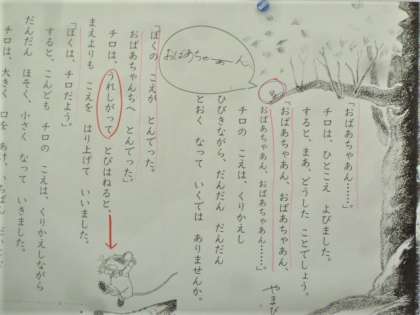 「おばあちゃあん……」。
チロは、ひとこえ よびました。
すると、まあ、どうした ことでしょう。
「おばあちゃあん、おばあちゃあん、
おばあちゃあん、おばあちゃあん……」
やまび
チロの こえは、くりかえし
ひびきながら、だんだん だんだん
とおく なって いくでは ありませんか。
おばあちゃーん
「ぼくの こえが とんでった。
おばあちゃんちへ とんでった。」
チロは、うれしがって とびはねると、
まえよりも こえを はり上げて いいました。
「ぼくは、チロだよう」。
すると、こんども チロの こえは、くりかえしながら
だんだん ほそく、小さく なって いきました。
チロは、大きく 口を あけ、